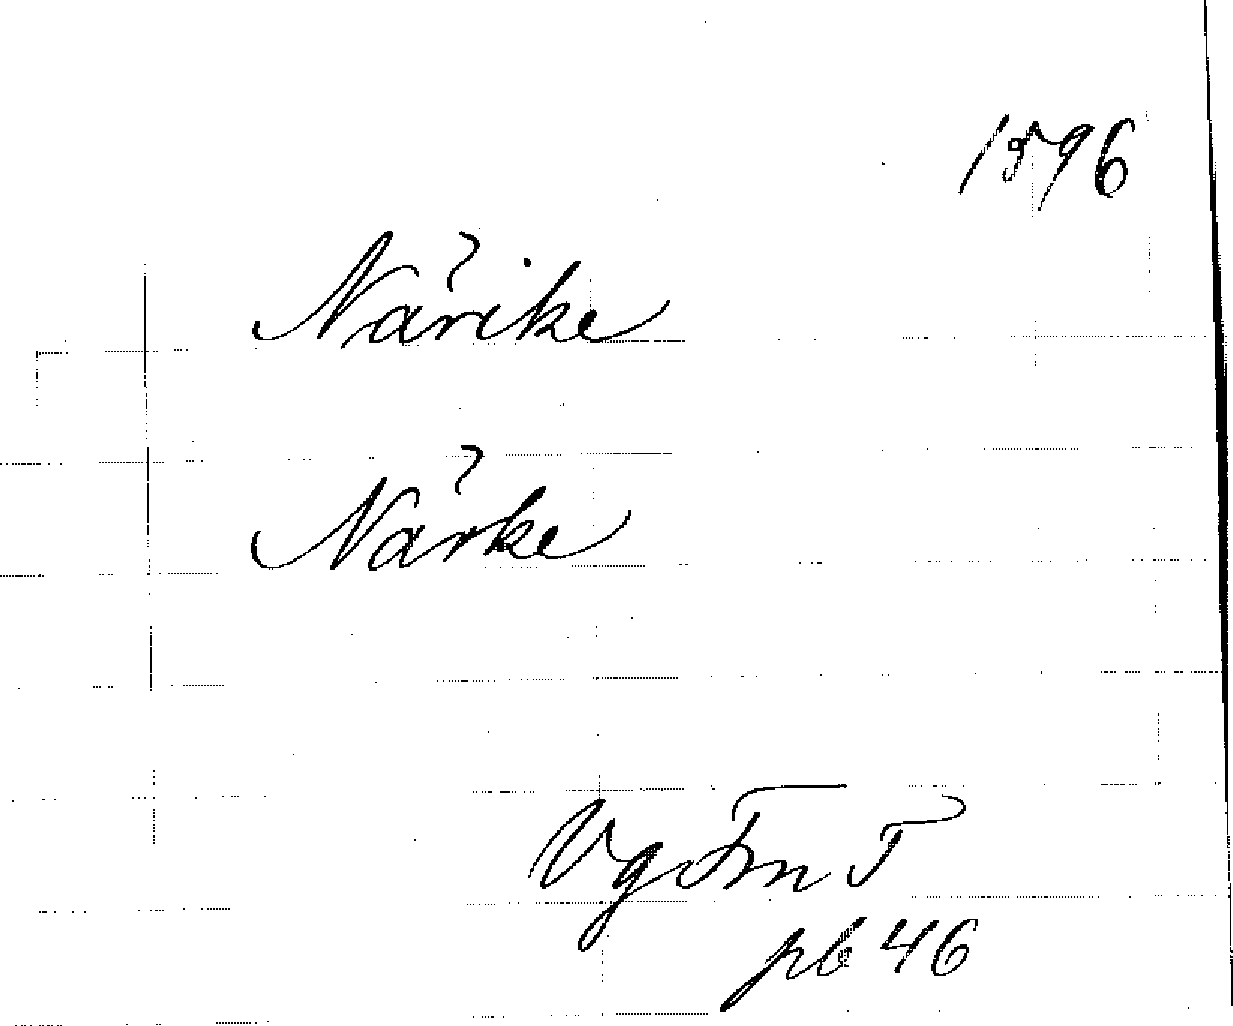 1596
Närike
Närke
Vg Fm T
pb 46